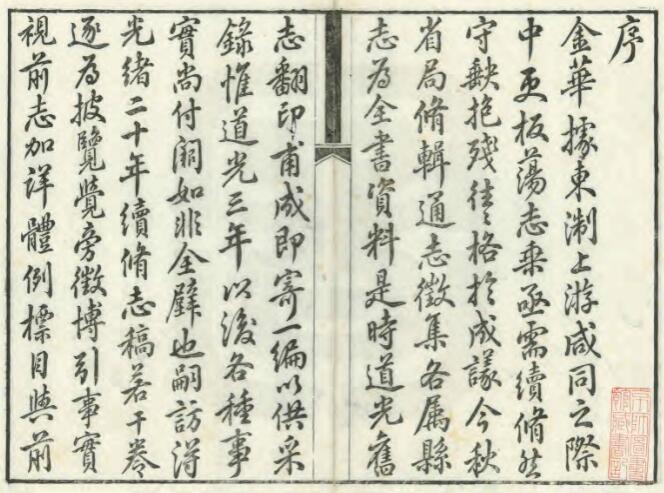 序
金華據東淛上游咸同之際
中更板蕩志乘亟需續脩然
守缺抱殘往〻格於成議今秋
省局脩輯通志徵集各属縣
志為全書資料是時道光舊
志翻印甫成即寄一編以供采
錄惟道光三年以後各種事
實尚付闕如非全璧也嗣訪得
光緒二十年續脩志稿若干卷
遂為披覽覺旁徵博引事實
視前志加詳體例標目與前